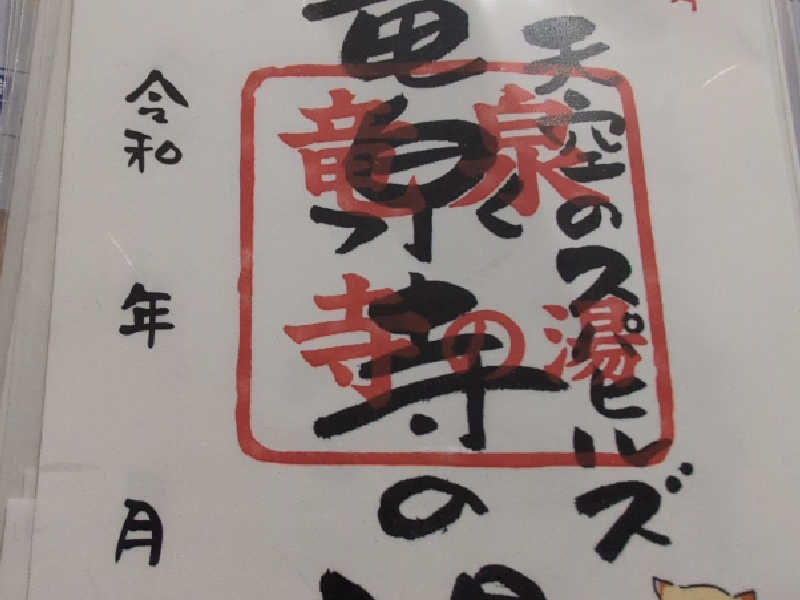 天空のスパヒルズ
竜泉寺の湯
竜泉
寺の湯
令和
年
月